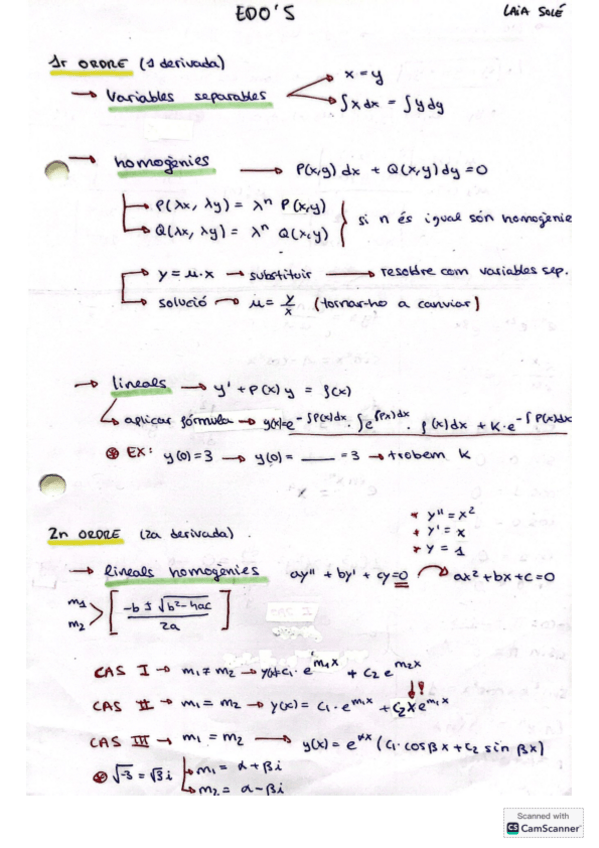 EDO'S
LAIA SOLÉ
1r ORDRE (1 derivada)
→ Variables separables → x = y
→ ∫x dx = ∫y dy
→ homogènies → P(x,y) dx + Q(x,y) dy = 0
→ P(λx, λy) = λⁿ P(x,y)
→ Q(λx, λy) = λⁿ Q(x,y)
} si n és igual són homogènie
→ y = u·x → substituir → resoldre com variables sep.
→ solució → u = y/x (tornar-ho a canviar)
→ lineals → y' + P(x) y = f(x)
→ aplicar fórmula → y(x)=e^{-∫P(x)dx} · ∫e^{∫P(x)dx} · f(x)dx + K·e^{-∫P(x)dx}
⊛ EX: y(0)=3 → y(0) = ____ = 3 → trobem K
2n ORDRE (2a derivada)
* y'' = x²
* y' = x
* y = 1
→ lineals homogènies ay'' + by' + cy = 0 → ax² + bx + c = 0
m1
m2 > [ -b ± √b²-4ac / 2a ]
CAS I → m1 ≠ m2 → y(x)=C1·e^{m1x} + C2 e^{m2x}
↓!
CAS II → m1 = m2 → y(x) = C1·e^{m1x} + C2xe^{m1x}
CAS III → m1 = m2 → y(x) = e^{αx} (C1·cosβx + C2 sin βx)
⊛ √-3 = √3i → m1 = α + βi
→ m2 = α - βi
Scanned with
CS CamScanner